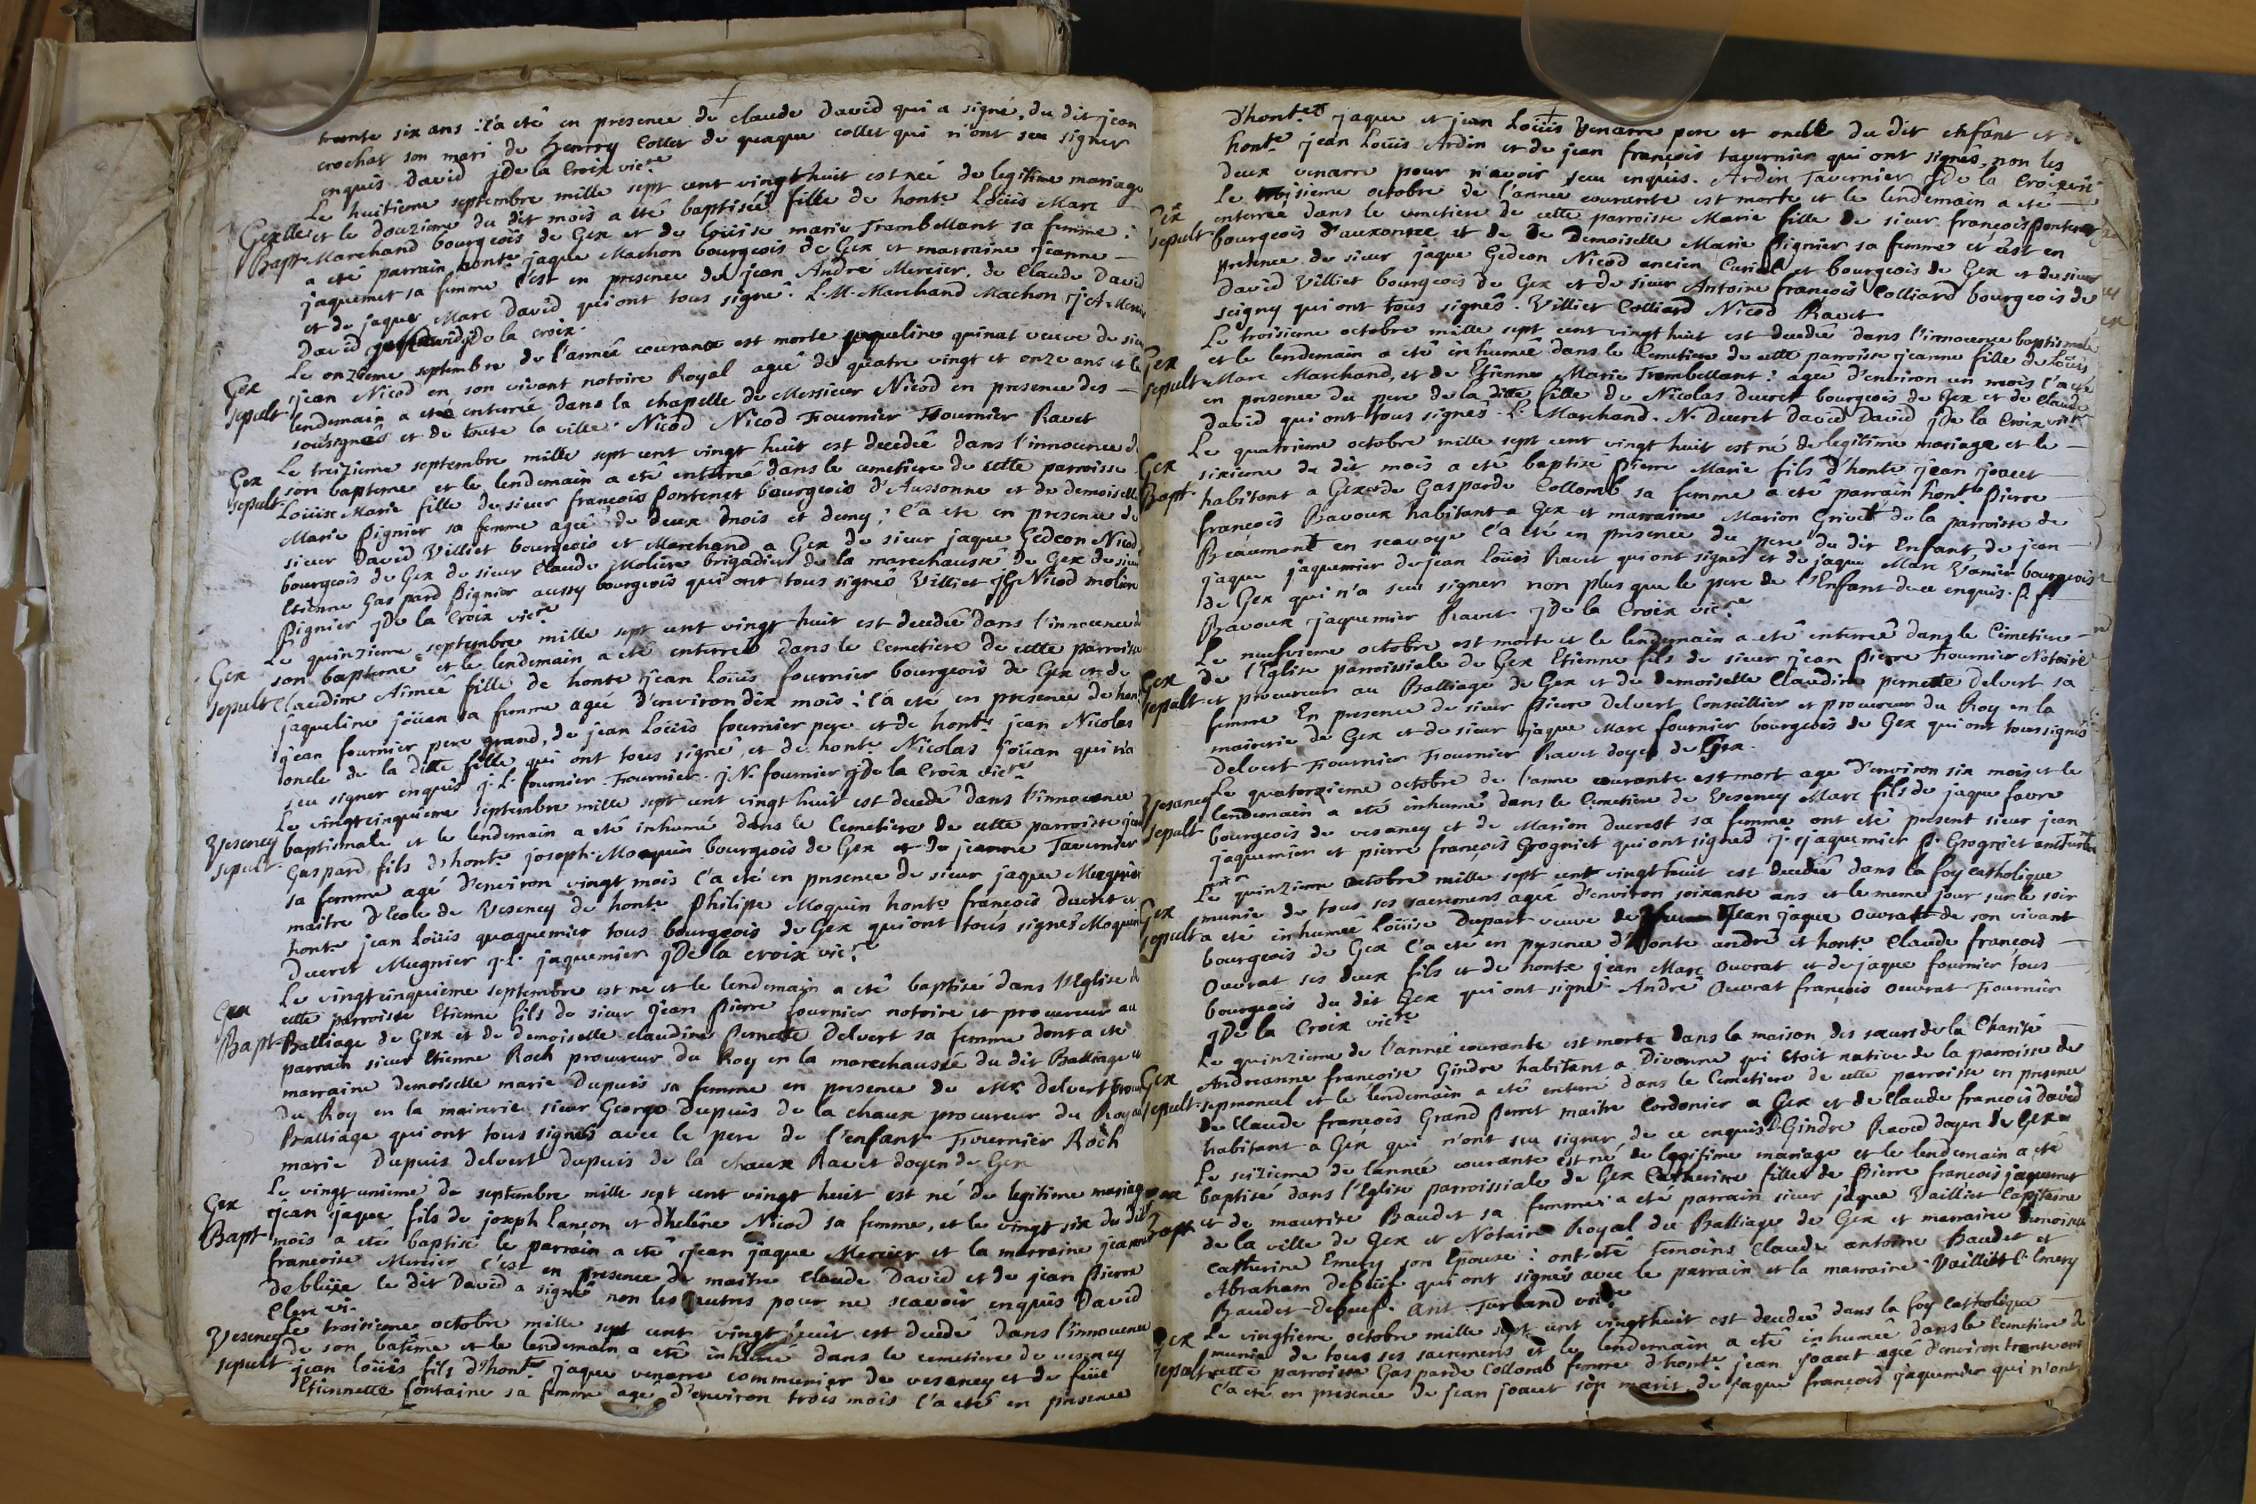 trente six ans : l'a eté en presence de claude david qui a signé, du dit jean
crochat son mari de henrry collet de quaque collet qui n'ont seu signer
enquis david jDe la Croix vic.re
Le huitieme septembre mille sept cent vingt huit est née de legitime mariage
Gex elle et le douzieme du dit mois a eté baptisée fille de honte Loüis Marc
Bapt Marchand bourgeois de Gex et de loüise marie Trambellant sa femme :
a eté parrain honte jaque Machon bourgeois de Gex et marraine jeanne
jaquemet sa femme c'est en presence de jean André Mercier, de Claude David
et de jaque Marc David qui ont tous signé. L. M. Marchand Machon j A Mercier
David jDe la croix.
Le onzieme septembre de l'année courante est morte jaqueline quinat veuve de sieur
Gex jean Nicod en son vivant notoire Royal agée de quatre vingt et onze ans et le
sepult lendemain a eté enterrée dans la chapelle de Messieur Nicod en presence des
soussignés et de toute la ville. Nicod Nicod Fournier Fournier Ravet
Le treizieme septembre mille sept cent vingt huit est decedée dans l'innocence de
Gex son bapteme et le lendemain a eté enterrée dans le cemetiere de cette parroisse
sepult Loüise Marie fille de sieur françois Pontenet bourgeois d'Aussonne et de demoiselle
Marie Pignier sa femme agée de deux mois et demy ; l'a eté en presence de
sieur David Villiet bourgeois et Marchand a Gex de sieur jaque Gedeon Nicod
bourgeois de Gex de sieur Claude Moliere brigadier de la marechaussé de Gex de sieur
Etienne Gaspard Pignier aussy bourgeois qui ont tous signés Villiet JG Nicod moliere
Pignier jDe la Croix vic.re
Le quinzieme septembre mille sept cent vingt huit est decedée dans l'innocence de
Gex son bapteme et le lendemain a eté enterrée dans le Cemetiere de cette parroisse
sepult Claudine Aimeé fille de honte jean Loüis fournier bourgeois de Gex et de
jaqueline joüan sa femme agée d'environ dix mois : l'a eté en presence de hon.
jean fournier pere grand, de jean Loüis fournier pere et de hont. jean Nicolas
oncle de la ditte fille qui ont tous signé, et de honte Nicolas joüan qui n'a
seu signer enquis j. L. fournier. Fournier. j N. fournier jDe la Croix vic.re
Le vingtcinquieme septembre mille sept cent vingt huit est decedé dans l'innocence
Vesenex baptismale et le lendemain a eté inhumé dans le Cemetiere de cette parroisse jean
sepult Gaspard fils d'hont. joseph Moquin bourgeois de Gex et de jeanne Tavernier
sa femme agé d'environ vingt mois l'a eté en presence de sieur jaque Mugnier
maitre d'Ecole de Vesency de honte philipe Moquin honte françois ducret et
honte jean Loüis quaquemier tous bourgeois de Gex qui ont tous signés Moquin
Ducret Mugnier j. L. jaquemier jDe la croix vic.re
Le vingtcinquieme septembre est né et le lendemain a eté baptisé dans l'Eglise de
Gex cette parroisse Etienne fils de sieur jean Pierre fournier notoire et procureur au
Bapt Balliage de Gex et de demoiselle claudine Pernette Delvert sa femme dont a eté
parrain sieur Etienne Roch procureur du Roy en la marechaussé du dit Balliage et
marraine demoiselle marie Dupuis sa femme en presence de delvert procur
du Roy en la mairerie sieur George Dupuis de la chaux procureur du Roy au
Balliage qui ont tous signés avec le pere de l'enfant Fournier Roch
marie Dupuis delvert dupuis de la chaux Ravet doyen de Gex
Le vingt unieme de septembre mille sept cent vingt huit est né de legitime mariage
Gex jean jaque fils de joseph Lançon et d'helene Nicod sa femme, et le vingt six du dit
Bapt mois a eté baptisé le parrain a eté jean jaque Mercier et la marraine jeanne
francoise Mercier c'est en presence de maitre Claude David et de jean Pierre
debluxe le dit David a signé non les autres pour ne scavoir enquis David
Clerc vi.
Vesenex Le troisieme octobre mille sept cent vingt huit est decedé dans l'innocence
de son batême et le lendemain a eté inhumé dans le cemetiere de vesency
sepult jean loüis fils d'hont. jaque venarre communier de vesency et de feüe
Etiennette fontaine sa femme age d'environ trois mois l'a eté en presence
d'hont.es jaque et jean Loüis Venarre pere et oncle du dit enfant et de
honte jean Loüis Ardin et de jean françois tavernier qui ont signés, non les
deux venarre pour n'avoir seu enquis. Ardin Tavernier jDe la Croix vic
Le troisieme octobre de l'année courante est morte et le lendemain a eté
Gex enterrée dans le cemetiere de cette parroisse Marie fille de sieur françois Pontenet
sepult bourgeois d'auxonne et de Demoiselle Marie Pignier sa femme et c'est en
presence de sieur jaque Gedeon Nicod ancien Curial et bourgeois de Gex et de sieur
David Villiet bourgeois de Gex et de sieur Antoine françois Colliard bourgeois de
seigny qui ont tous signés. Villiet Colliard Nicod Ravet
Le troisieme octobre mille sept cent vingt huit est decedée dans l'innocence baptismale
Gex et le lendemain a eté inhumée dans le Cemetiere de cette parroisse jeanne fille de Loüis
sepult Marc Marchand, et de Etienne Marie Trambellant : agée d'environ un mois l'a eté
en presence du pere de la ditte fille de Nicolas ducret bourgeois de Gex et de Claude
david qui ont tous signés L. Marchand. N. Ducret David David jDe la Croix vic.re
Le quatrieme octobre mille sept cent vingt huit est né de legitime mariage et le
Gex sixieme du dit mois a eté baptisé Pierre Marie fils d'honte jean joacet
Bapt. habitant a Gex et de Gasparde Collomb sa femme a eté parrain honte Pierre
françois Bavoux habitant a Gex et marraine Marion Grivet de la parroisse de
Beaumont en scavoye l'a eté en presence du pere du dit Enfant, de jean
jaque jaquemier de jean Loüis Ravet qui ont signés et de jaque Marc Vanier bourgeois
de Gex qui n'a seu signer non plus que le pere de l'Enfant de ce enquis. P. f.
Bavoux jaquemier Ravet jDe la Croix vic.re
Le neufvieme octobre est morte et le lendemain a eté enterreé dans le Cimetiere
Gex de l'Eglise parroissiale de Gex Etienne fils de sieur jean Pierre Fournier Notaire
sepult et procureur au Balliage de Gex et de Demoiselle Claudine pernette delvert sa
femme En presence de sieur Pierre delvert Conseillier et procureur du Roy en la
mairerie de Gex et de sieur jaque Marc fournier bourgeois de Gex qui ont tous signés
delvert Fournier Fournier Ravet doyen de Gex.
Vesancy Le quatorzieme octobre de l'anne courante est mort agé d'environ six mois et le
lendemain a eté inhumé dans le Cemetiere de Vesency Marc fils de jaque favre
sepult bourgeois de vesancy et de Marion ducrest sa femme ont eté present sieur jean
jaquemier et pierre françois Grogniet qui ont signed j. jaquemier P. Grogniet ant. Turland
Le quinzieme octobre mille sept cent vingt huit est decedée dans la foy catholique
Gex munie de tous ses sacremens agée d'environ soixante ans et le meme jour sur le soir
sepult a eté inhumée Loüise Dupart veuve de Jean jaque ouvrat de son vivant
bourgeois de Gex l'a eté en presence d'honte andré et honte Claude françois
ouvrat ses deux fils et de honte jean Marc ouvrat et de jaque fournier tous
bourgeois du dit Gex qui ont signé André ouvrat françois ouvrat Fournier
jDe la Croix vic.re
Le quinzieme de l'année courante est morte dans la maison des sœurs de la Charité
Gex Andreanne françoise Gindre habitant a Divonne qui Etoit native de la parroisse de
sepult septmoncel et le lendemain a eté enterré dans le Cemetiere de cette parroisse en presence
de Claude francois Grand Perret maitre Cordonier a Gex et de Claude francois david
habitant a Gex qui n'ont seu signer de ce enquis. Gindre Ravet doyen de Gex
Le seizieme de lannée courante est né de legitime mariage et le lendemain a eté
Gex baptisé dans l'Eglise parroissiale de Gex Catherine fille de Pierre françois jaquemet
Bapt et de maurise Baudet sa femme : a eté parrain sieur jaque Vailliet Capitaine
de la ville de Gex et Notaire Royal du Balliage de Gex et marraine demoiselle
Catherine Emery son Epouse : ont eté temoins claude antoine Baudet et
Abraham Debüe qui ont signés avec le parrain et la marraine Vailliet C. Emery
Baudet Ant. Turland vic.re
Le vingtieme octobre mille sept cent vingt huit est decedée dans la foy catholique
Gex munie de tous ses sacremens et le lendemain a eté inhumée dans le Cemetiere de
sepult cette parroisse Gasparde Collomb femme d'honte jean joacet agée d'environ trente ans
l'a eté en presence de jean joacet son marit de jaque françois jaquemier qui n'ont